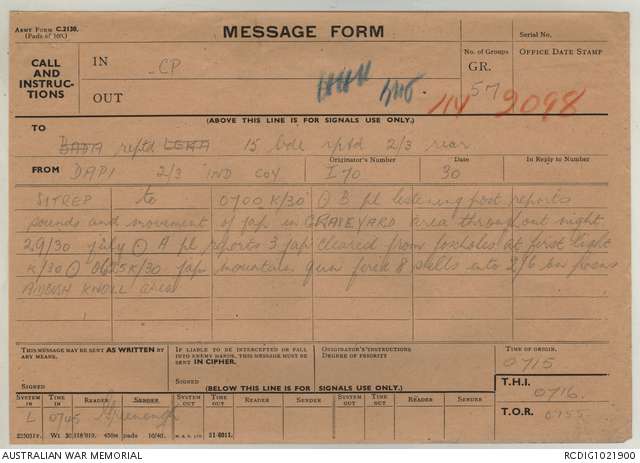 ARMY FORM C.2138.
(Pads of 100.)
MESSAGE FORM
Serial No.
CALL AND INSTRUCTIONS
IN
CP
OUT
No. of Groups
GR.
57
OFFICE DATE STAMP
114 2098
(ABOVE THIS LINE IS FOR SIGNALS USE ONLY.)
TO
reptd 15 bde rptd 2/3 rear
FROM DAPI 2/3 IND COY
Originator's Number
I 70
Date
30
In Reply to Number
SITREP to 0700 K/30 ⊙ B pl listening post reports
sounds and movement of jap in GRAVEYARD area throughout night
29/30 july ⊙ A pl reports 3 jap cleared from foxholes at first light
K/30 ⊙ K/30 jap mountain gun fired 8 shells into 2/6 bn
KNOLL area
THIS MESSAGE MAY BE SENT AS WRITTEN BY
ANY MEANS.
SIGNED
IF LIABLE TO BE INTERCEPTED OR FALL
INTO ENEMY HANDS, THIS MESSAGE MUST BE
SENT IN CIPHER.
SIGNED
ORIGINATOR'S INSTRUCTIONS
DEGREE OF PRIORITY
TIME OF ORIGIN
0715
(BELOW THIS LINE IS FOR SIGNALS USE ONLY.)
T.H.I.
0716
SYSTEM IN
TIME IN
READER
SENDER
SYSTEM OUT
TIME OUT
READER
SENDER
SYSTEM OUT
TIME OUT
READER
SENDER
T.O.R.
L 0745
51-6011.
AUSTRALIAN WAR MEMORIAL
RCDIG1021900